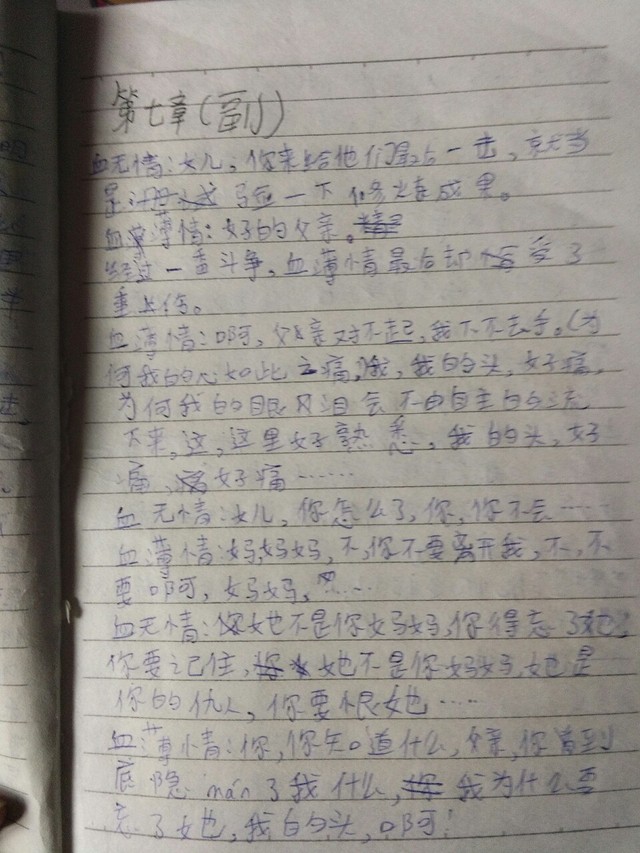 第七章(副)
血无情:女儿,你来给他们最后一击,就当
是 马佥一下修炼成果。
血薄情:好的父亲。
经过一番斗争,血薄情最后却 受了
重伤。
血薄情:啊,父亲对不起,我下不去手。(为
何我的心如此之痛,)哦,我的头,好痛,
为何我的眼泪会不由自主的流
下来,这,这里好熟悉,我的头,好
痛,好痛……
血无情:女儿,你怎么了,你,你不会……
血薄情:妈,妈妈,不,你不要离开我,不,不
要啊,妈妈,……
血无情:她不是你妈妈,你得忘了她,
你要记住,她不是你妈妈,她是
你的仇人,你要恨她……
血薄情:你,你知道什么,父亲,你到
底隐mán了我什么,我为什么要
忘了她,我的头,啊!